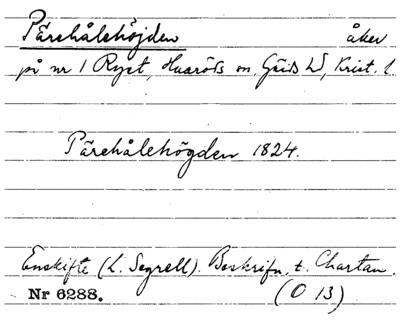 Pärehålehöjden åker
på nr 1 Ryet, Huaröds sn, Gärds hd, Krist. l.
Pärehålehögden 1824.
Enskifte (L. Segrell). Beskrifn. t. Chartan.
Nr 6288. (O 13)